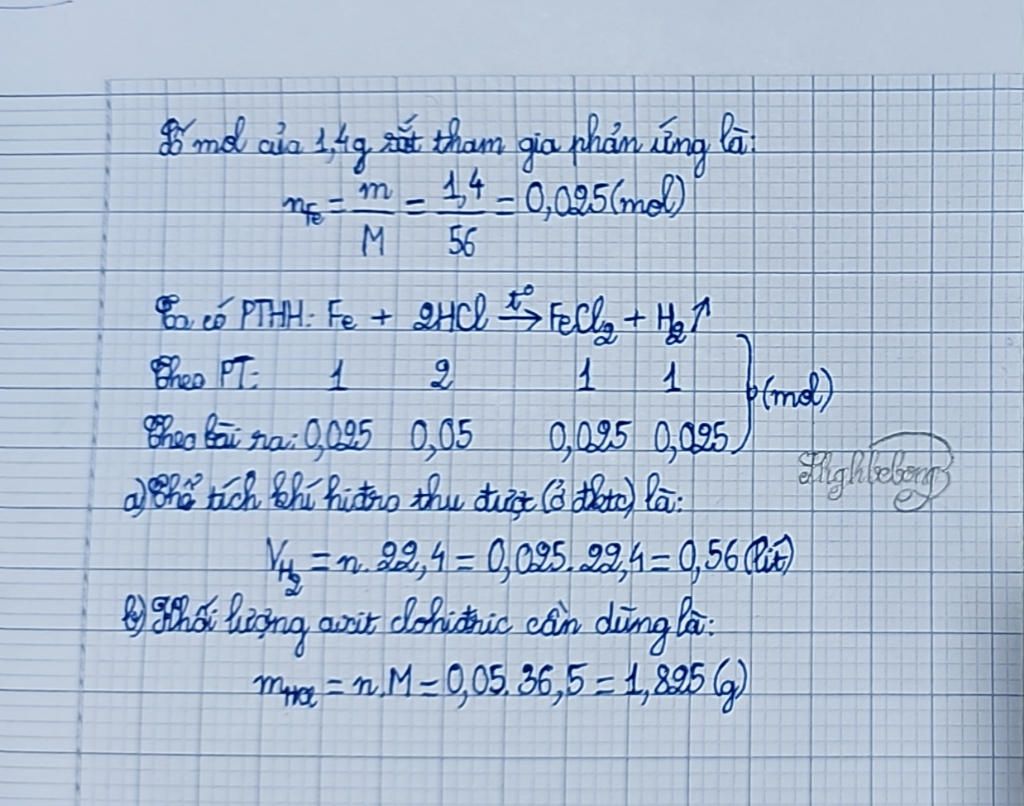 Số mol của 1,4g sắt tham gia phản ứng là:
n_Fe = m/M = 1,4/56 = 0,025(mol)
Ta có PTHH: Fe + 2HCl t°→ FeCl₂ + H₂↑
Theo PT: 1 2 1 1
(mol)
Theo bài ra: 0,025 0,05 0,025 0,025
Thghbebong
a) Thể tích khí hiđro thu được (ở đktc) là:
V_H₂ = n. 22,4 = 0,025. 22,4 = 0,56 (lít)
b) Khối lượng axit clohiđric cần dùng là:
m_HCl = n.M = 0,05. 36,5 = 1,825 (g)